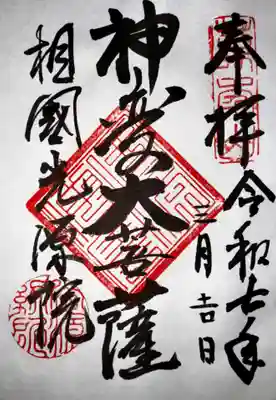 奉拝 令和七年
三月吉日
神変大菩薩
相國光源院